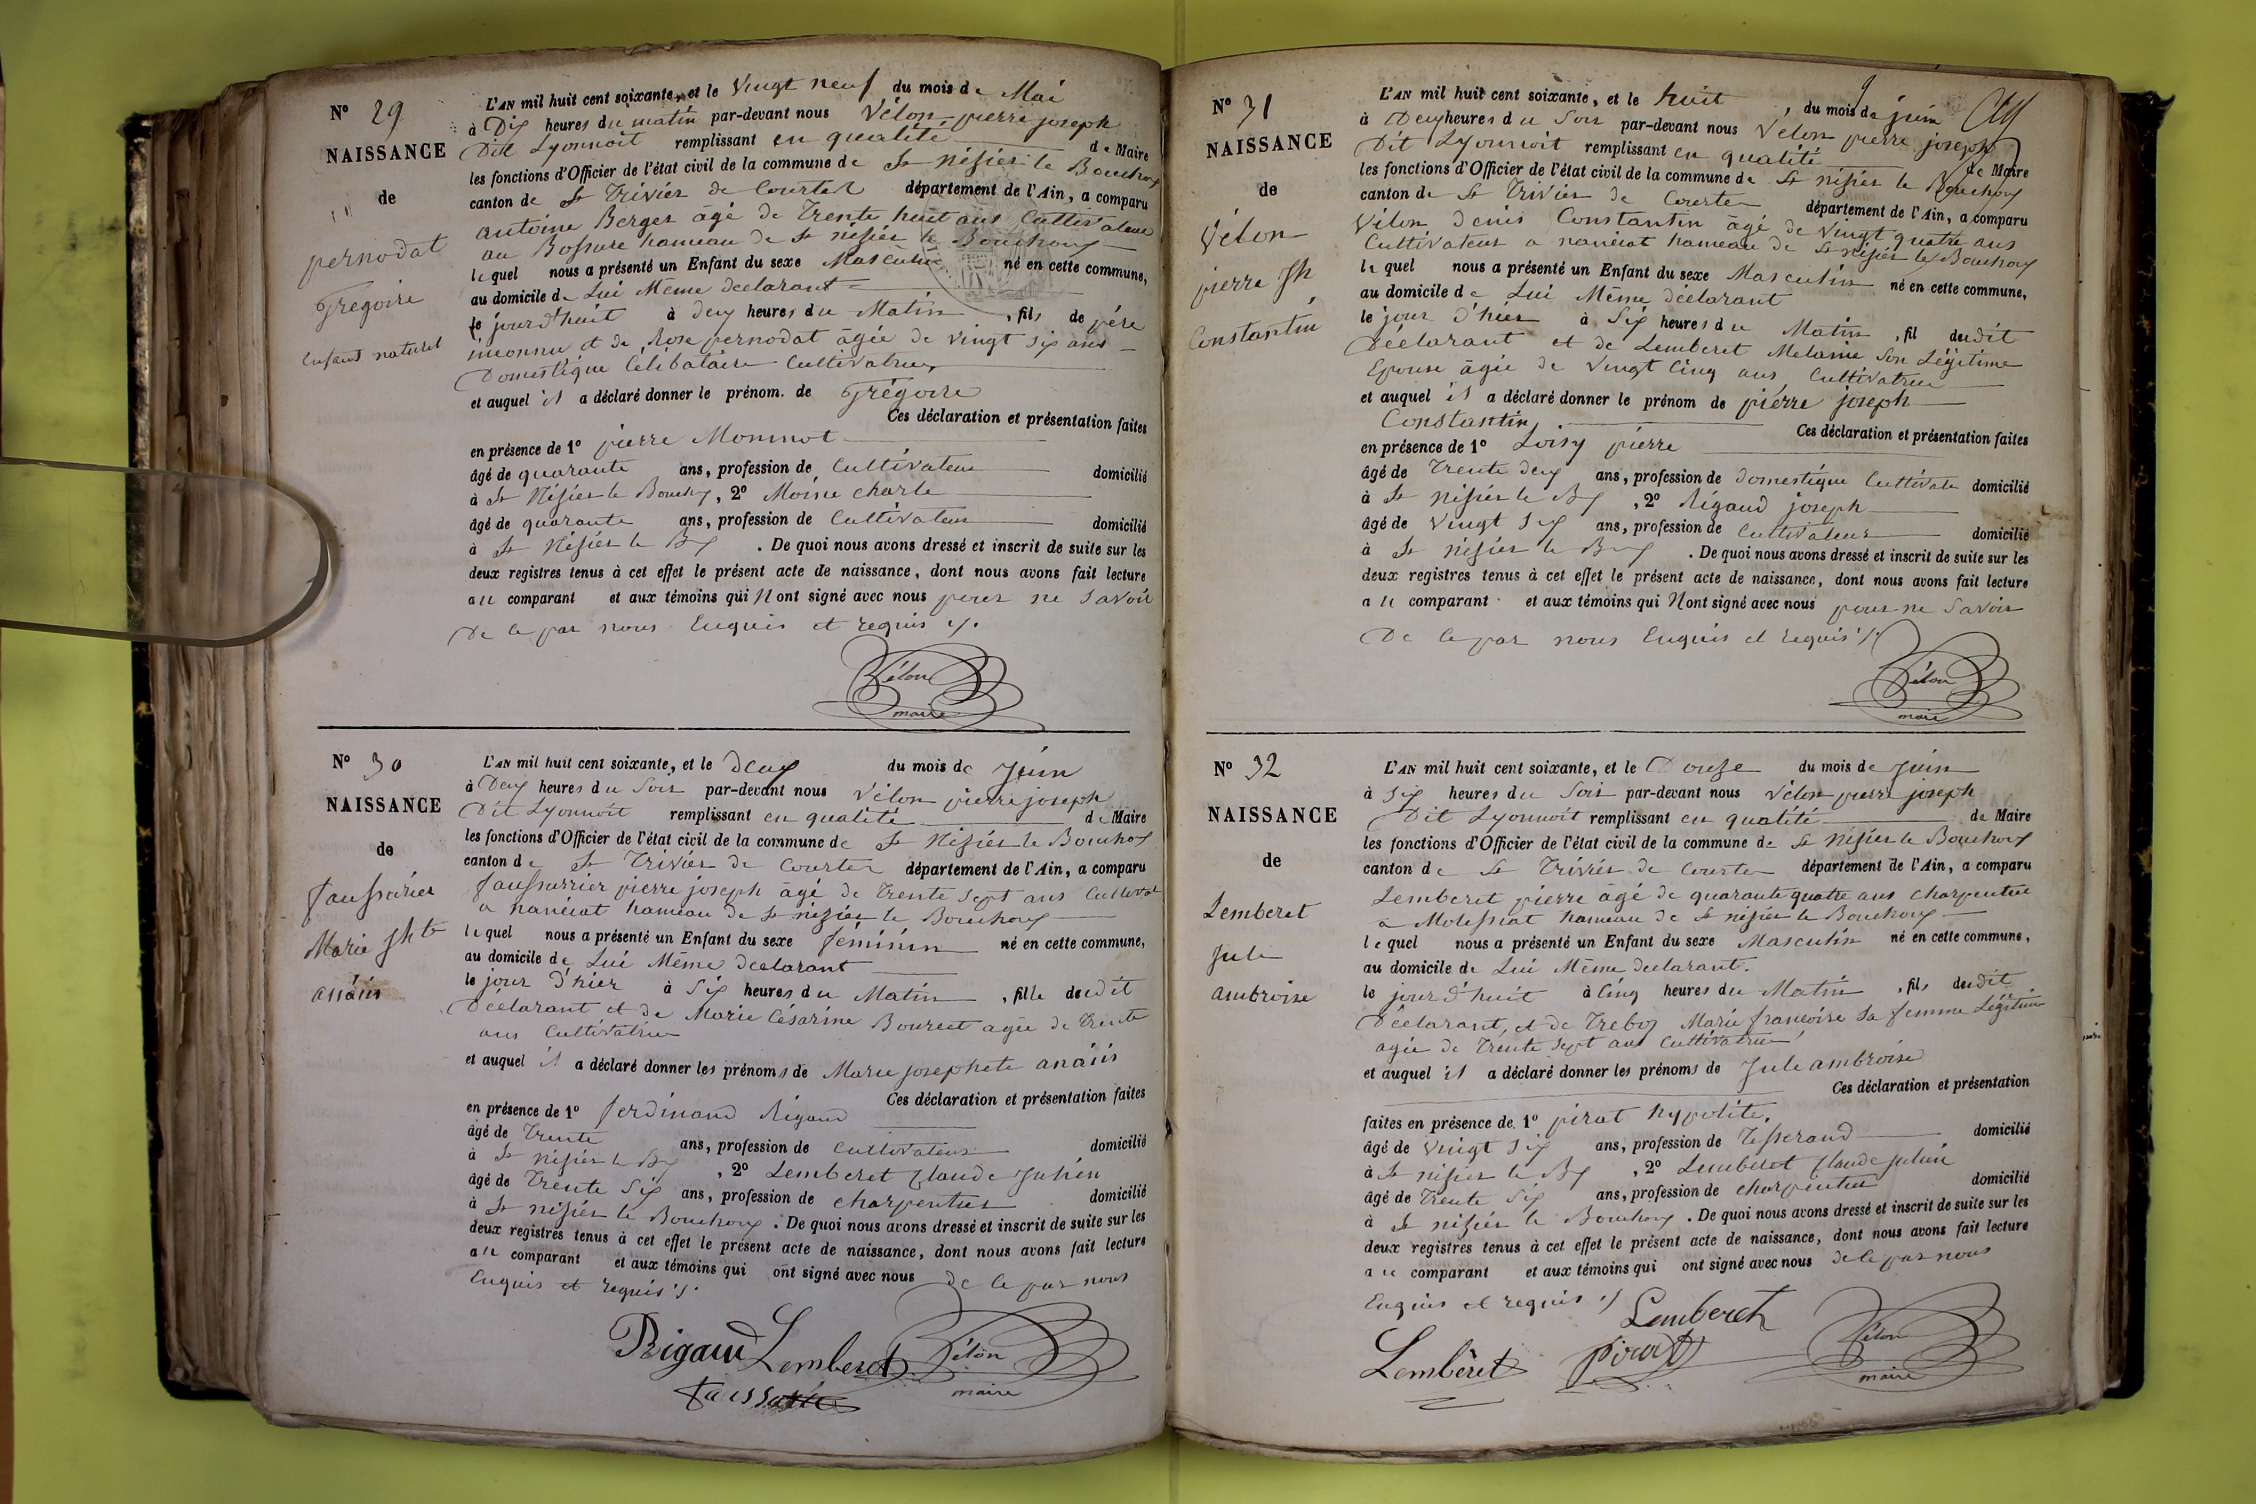 N° 29
NAISSANCE
de
pernodat
Grégoire
Enfant naturel
L'AN mil huit cent soixante, et le Vingt neuf du mois de Mai
à Dix heures du matin par-devant nous Vélon pierre joseph
Dit Lyonnoit remplissant en qualité de Maire
les fonctions d'Officier de l'état civil de la commune de St Nésier le Bouchoux
canton de St Trivier de Courtes département de l'Ain, a comparu
antoine Berger âgé de Trente huit ans Cultivateur
au Bossure hameau de St nésier le Bouchoux
lequel nous a présenté un Enfant du sexe Masculin né en cette commune,
au domicile de Lui Même déclarant
le jourd'huit à deux heures du Matin, fils de père
inconnu et de Rose pernodat âgée de vingt six ans
Domestique Célibataire Cultivatrice
et auquel il a déclaré donner le prénom. de Grégoire
Ces déclaration et présentation faites
en présence de 1° pierre Monnot
âgé de quarante ans, profession de Cultivateur domicilié
à St Nésier le Bouchx, 2° Moine charle
âgé de quarante ans, profession de Cultivateur domicilié
à St Nésier le Bx. De quoi nous avons dressé et inscrit de suite sur les
deux registres tenus à cet effet le présent acte de naissance, dont nous avons fait lecture
au comparant et aux témoins qui N ont signé avec nous pour ne savoir
De ce par nous Enquis et requis ./.
Vélon
maire
N° 30
NAISSANCE
de
faussurier
Marie Jhte
anaïs
L'AN mil huit cent soixante, et le deux du mois de Juin
à Deux heures du Soir par-devant nous Vélon pierre joseph
Dit Lyonnoit remplissant en qualité de Maire
les fonctions d'Officier de l'état civil de la commune de St Nésier le Bouchox
canton de St Trivier de Courtes département de l'Ain, a comparu
faussurrier pierre joseph âgé de Trente Sept ans Cultivat
a naniat hameau de St nésier le Bouchoux
lequel nous a présenté un Enfant du sexe féminin né en cette commune,
au domicile de Lui Même déclarant
le jour d'hier à Six heures du Matin, fille dudit
Déclarant et de Marie Césarine Bourcet agée de Trente
ans Cultivatrice
et auquel il a déclaré donner les prénoms de Marie josephete anaïs
Ces déclaration et présentation faites
en présence de 1° ferdinand Rigaud
âgé de Trente ans, profession de Cultivateur domicilié
à St nésier le Bx, 2° Lemberet Claude Julien
âgé de Trente Six ans, profession de charpentier domicilié
à St nésier le Bouchoux. De quoi nous avons dressé et inscrit de suite sur les
deux registres tenus à cet effet le présent acte de naissance, dont nous avons fait lecture
au comparant et aux témoins qui ont signé avec nous de ce par nous
Enquis et requis ./.
Rigaud Lemberet Vélon
maire
N° 31
NAISSANCE
de
Vélon
pierre Jh
Constantin
L'AN mil huit cent soixante, et le huit, du mois de juin
à Deux heures du Soir par-devant nous Vélon pierre joseph
Dit Lyonnoit remplissant en qualité de Maire
les fonctions d'Officier de l'état civil de la commune de St nésier le Bouchoux
canton de St Trivier de Courtes département de l'Ain, a comparu
Vélon denis Constantin âgé de vingt quatre ans
Cultivateur a naniat hameau de St nésier le Bouchoux
lequel nous a présenté un Enfant du sexe Masculin né en cette commune,
au domicile de Lui Même déclarant
le jour d'hier à Six heures du Matin, fil dudit
Déclarant et de Lemberet Melanie Son Légitime
Epouse âgée de vingt Cinq ans Cultivatrice
et auquel il a déclaré donner le prénom de pierre joseph
Constantin
Ces déclaration et présentation faites
en présence de 1° Loisy pierre
âgé de Trente deux ans, profession de domestique Cultivate domicilié
à St nésier le Bx, 2° Rigaud joseph
âgé de vingt six ans, profession de Cultivateur domicilié
à St nésier le Bx. De quoi nous avons dressé et inscrit de suite sur les
deux registres tenus à cet effet le présent acte de naissance, dont nous avons fait lecture
au comparant et aux témoins qui N ont signé avec nous pour ne savoir
De ce par nous Enquis et requis ./.
Vélon
maire
N° 32
NAISSANCE
de
Lemberet
Jule
ambroise
L'AN mil huit cent soixante, et le Douze du mois de Juin
à Six heures du Soir par-devant nous Vélon pierre joseph
Dit Lyonnoit remplissant en qualité de Maire
les fonctions d'Officier de l'état civil de la commune de St nésier le Bouchoux
canton de St Trivier de Courtes département de l'Ain, a comparu
Lemberet pierre âgé de quarante quatre ans charpentier
a Molissiat hameau de St nésier le Bouchoux
lequel nous a présenté un Enfant du sexe Masculin né en cette commune,
au domicile de Lui Même déclarant.
le jourd'huit à Cinq heures du Matin, fils dudit
Déclarant, et de Treboz Marie francoise Sa femme Légitime
agée de Trente Sept ans Cultivatrice
et auquel il a déclaré donner les prénoms de Jule ambroise
Ces déclaration et présentation
faites en présence de 1° pirat hypolite,
âgé de vingt Six ans, profession de Tisserand domicilié
à St nésier le Bx, 2° Lemberet Claude julien
âgé de Trente Six ans, profession de charpentier domicilié
à St nésier le Bouchoux. De quoi nous avons dressé et inscrit de suite sur les
deux registres tenus à cet effet le présent acte de naissance, dont nous avons fait lecture
au comparant et aux témoins qui ont signé avec nous de ce par nous
Enquis et requis ./. Lemberet
Lemberet pirat Vélon
maire